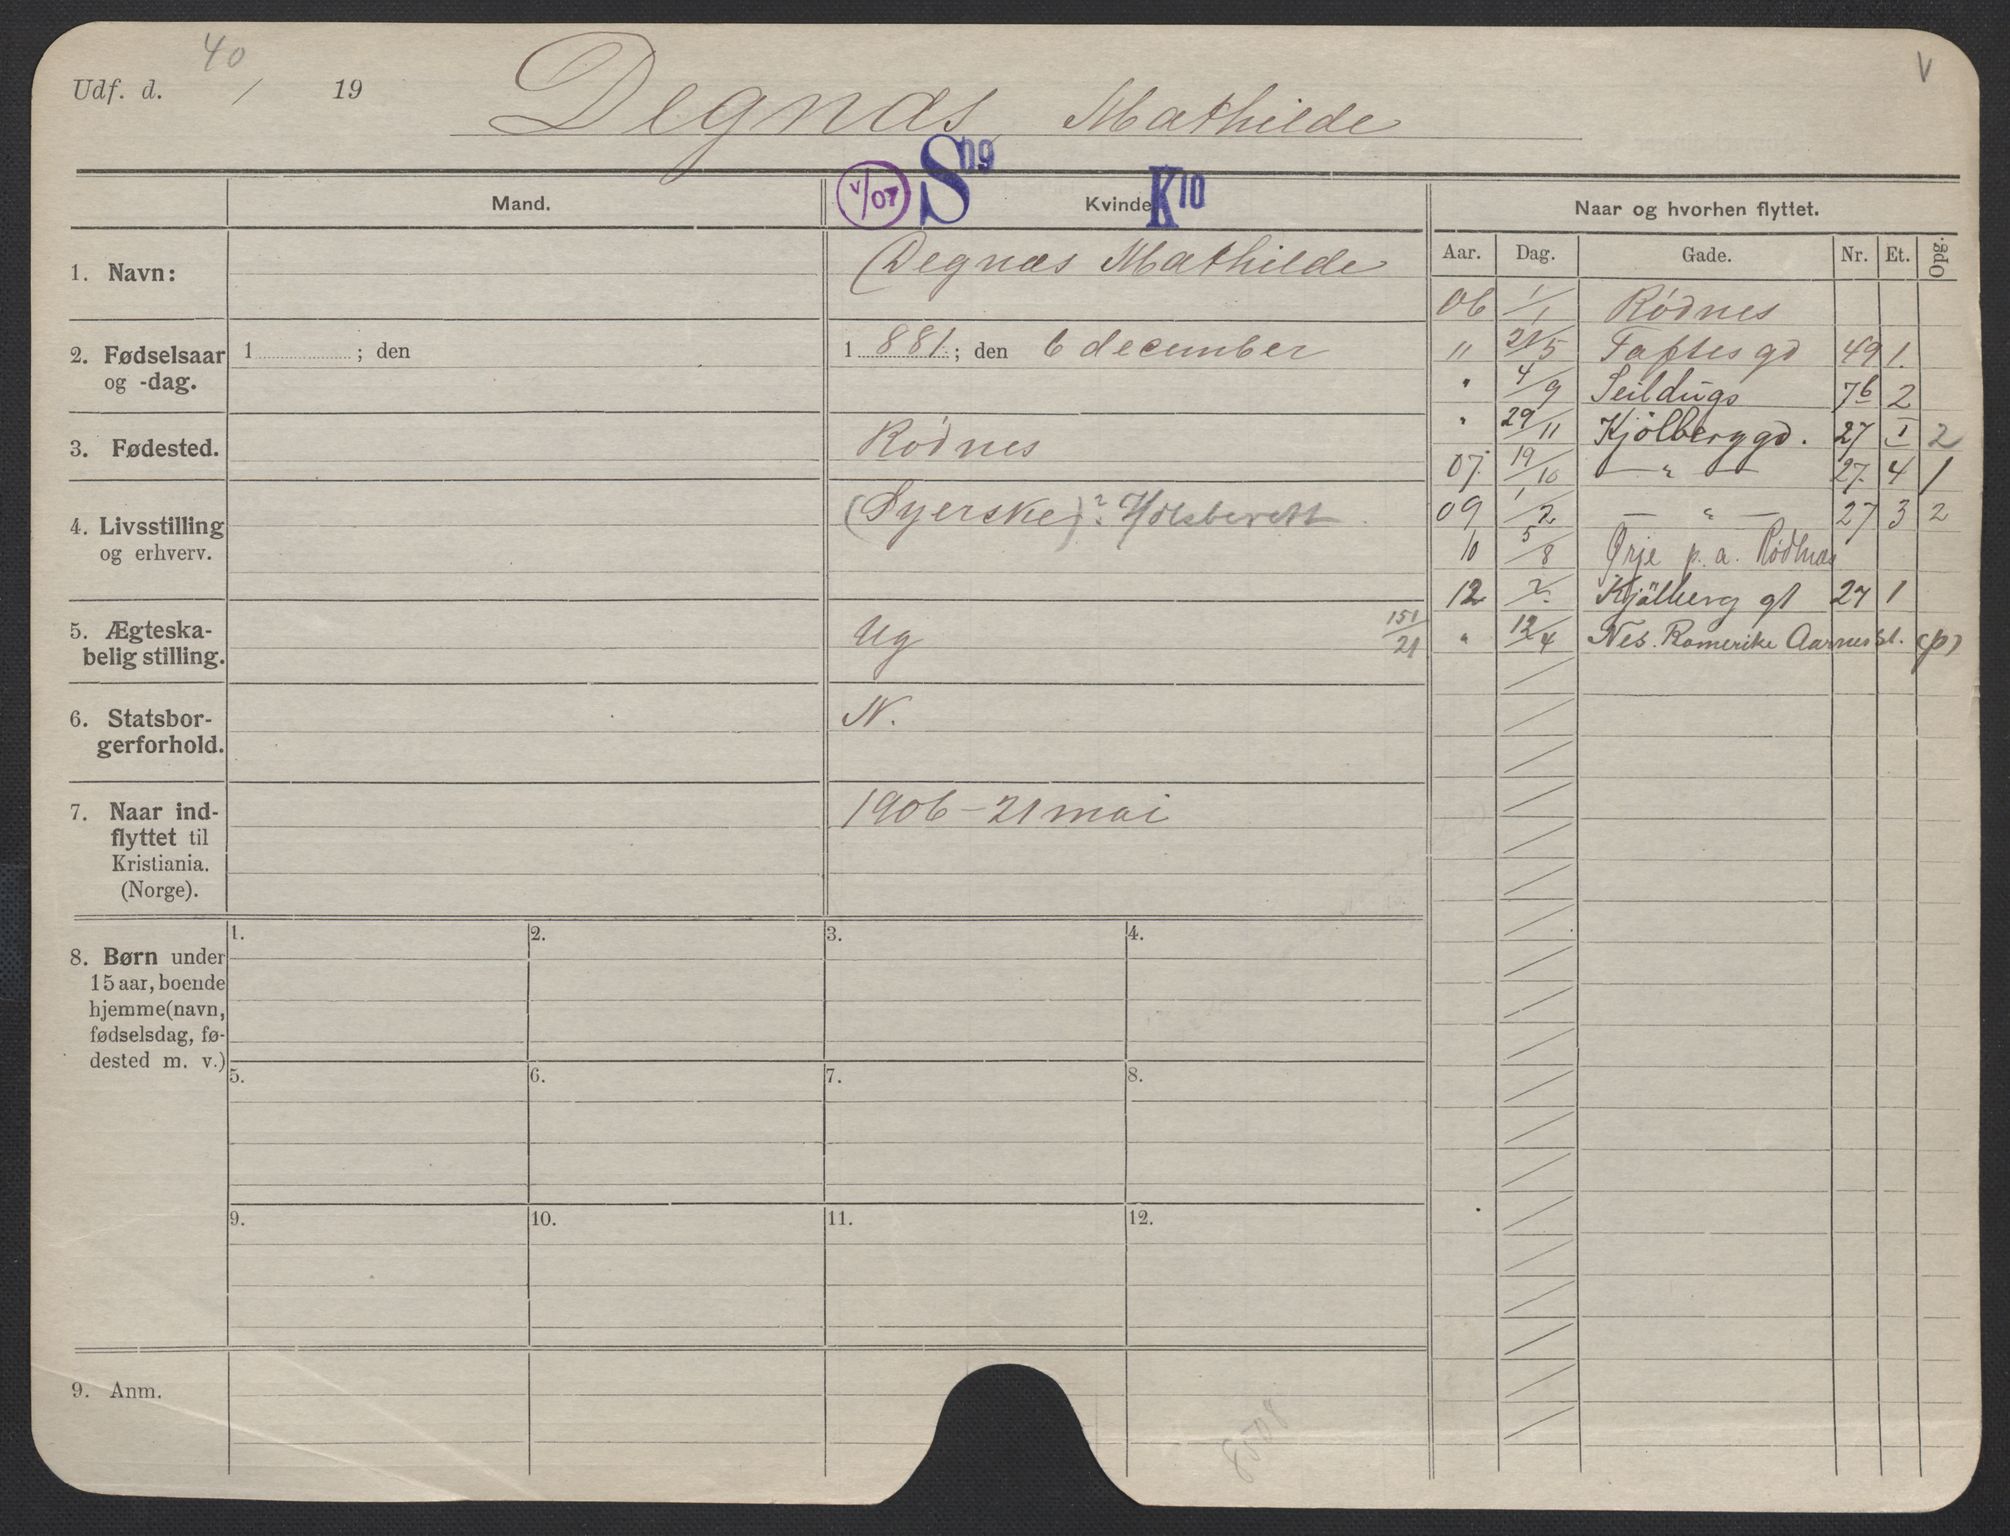 40
Udf. d. / 19 Degnæs, Mathilde V
Mand. V/07 S09 Kvinde K10 Naar og hvorhen flyttet.
Aar. Dag. Gade. Nr. Et. Opg.
1. Navn: Degnæs Mathilde
2. Fødselsaar og -dag. 1 ; den 1 881. ; den 6 december
3. Fødested. Rødnes
4. Livsstilling og erhverv. (Syerske)?
5. Ægteskabelig stilling. Ug 151/21
6. Statsborgerforhold. N.
7. Naar indflyttet til Kristiania. (Norge). 1906 – 21 mai
06 1/1 Rødnes
" 21/5 Taftesgd 49 1.
" 4/9 Seildugs 76 2
" 29/11 Kjölberggd. 27 1 2
07. 19/10 — " — 27. 4 1
09 1/2 — " — 27 3 2
10 5/8 Ørje p. a. Rødnæs
12 2/ Kjölberg gt 27 1
" 12/4 Nes. Romerike Aarnes st. (p)
8. Børn under
15 aar, boende
hjemme (navn,
fødselsdag, fø-
dested m. v.)
1. 2. 3. 4.
5. 6. 7. 8.
9. 10. 11. 12.
9. Anm.
8508